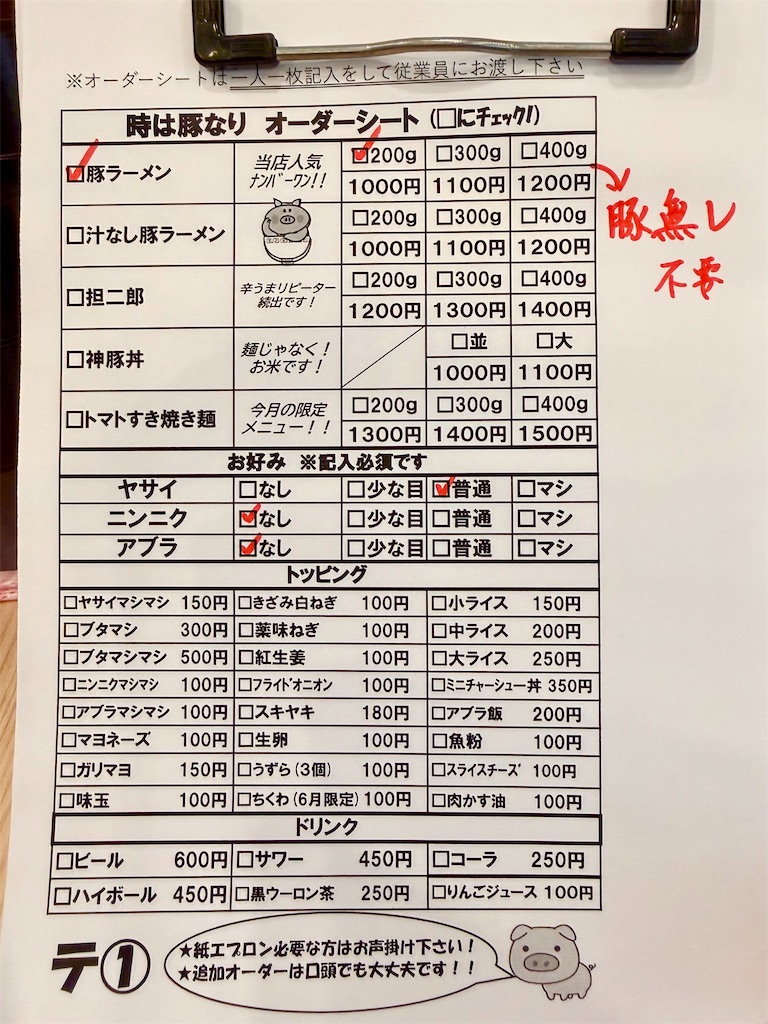 ※オーダーシートは一人一枚記入をして従業員にお渡し下さい
時は豚なり オーダーシート (□にチェック!)
☑豚ラーメン 当店人気ナンバーワン!! ☑200g □300g □400g
1000円 1100円 1200円
豚無し
不要
□汁なし豚ラーメン □200g □300g □400g
1000円 1100円 1200円
□担二郎 辛うまリピーター続出です! □200g □300g □400g
1200円 1300円 1400円
□神豚丼 麺じゃなく!お米です! □並 □大
1000円 1100円
□トマトすき焼き麺 今月の限定メニュー!! □200g □300g □400g
1300円 1400円 1500円
お好み ※記入必須です
ヤサイ □なし □少な目 ☑普通 □マシ
ニンニク ☑なし □少な目 □普通 □マシ
アブラ ☑なし □少な目 □普通 □マシ
トッピング
□ヤサイマシマシ 150円 □きざみ白ねぎ 100円 □小ライス 150円
□ブタマシ 300円 □薬味ねぎ 100円 □中ライス 200円
□ブタマシマシ 500円 □紅生姜 100円 □大ライス 250円
□ニンニクマシマシ 100円 □フライドオニオン 100円 □ミニチャーシュー丼 350円
□アブラマシマシ 100円 □スキヤキ 180円 □アブラ飯 200円
□マヨネーズ 100円 □生卵 100円 □魚粉 100円
□ガリマヨ 150円 □うずら(3個) 100円 □スライスチーズ 100円
□味玉 100円 □ちくわ(6月限定) 100円 □肉かす油 100円
ドリンク
□ビール 600円 □サワー 450円 □コーラ 250円
□ハイボール 450円 □黒ウーロン茶 250円 □りんごジュース 100円
テ① ★紙エプロン必要な方はお声掛け下さい!
★追加オーダーは口頭でも大丈夫です!!